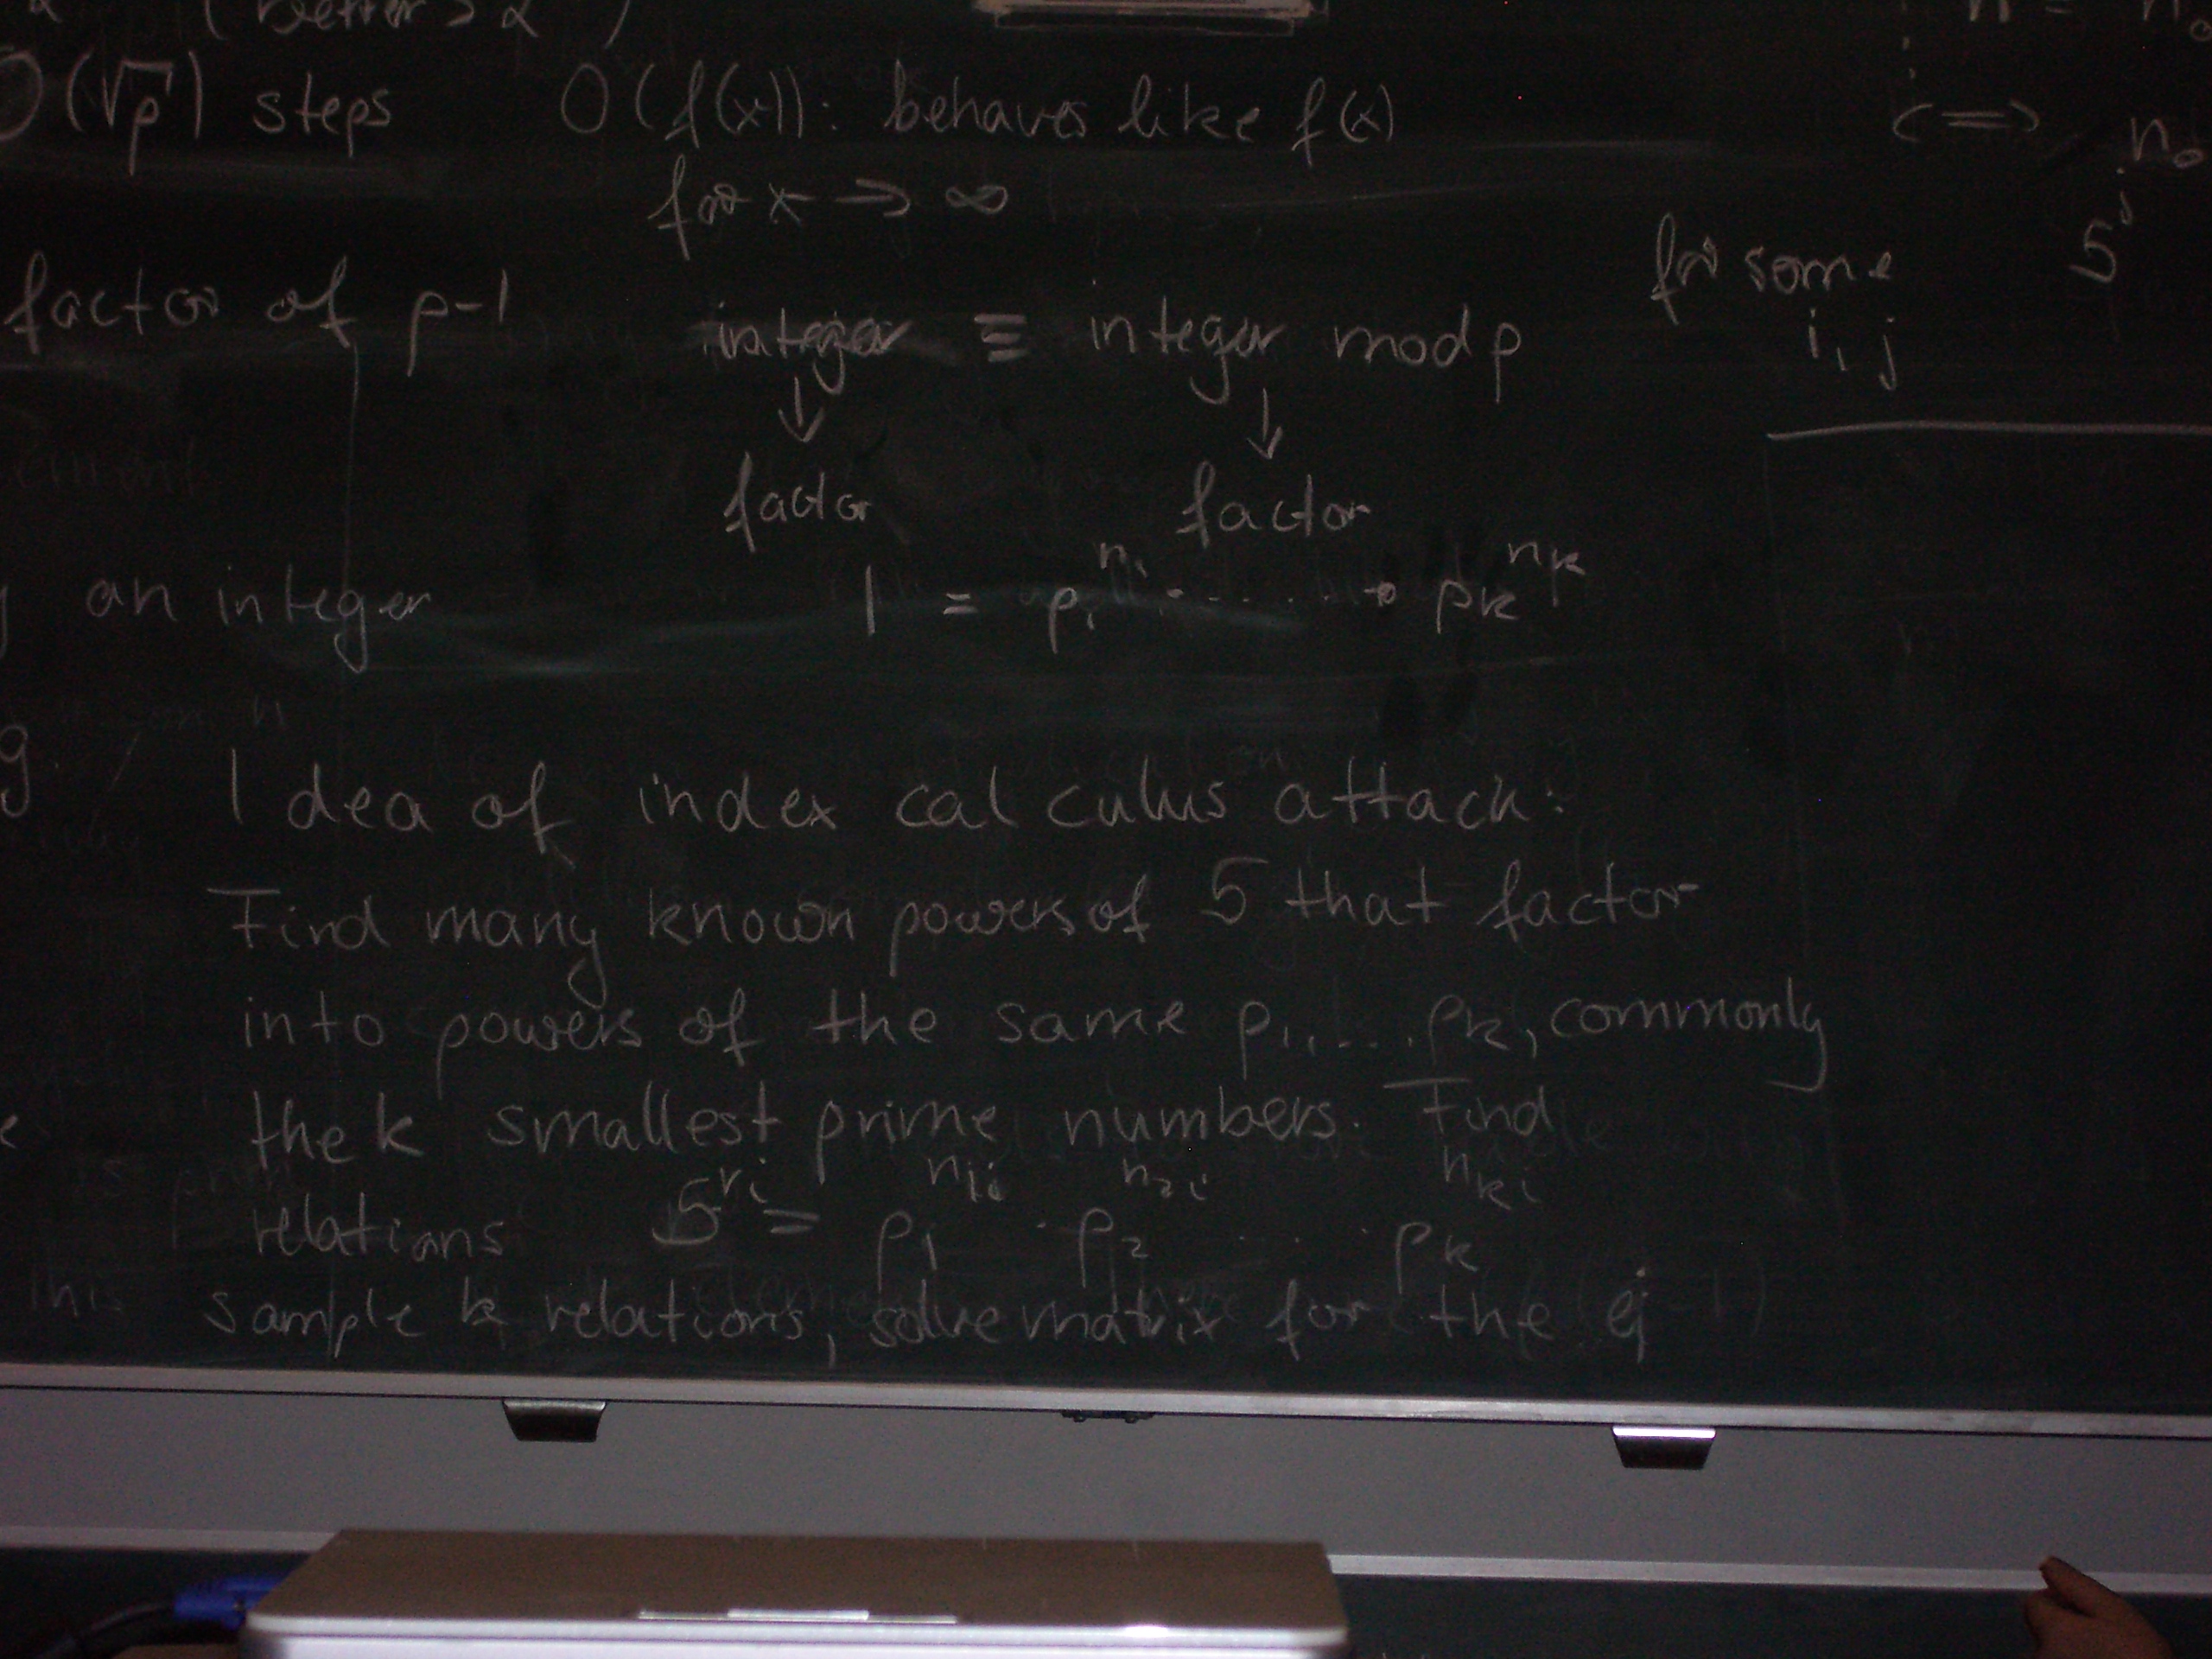 (better > α )
O(√p) steps
O(f(x)): behaves like f(x)
for x → ∞
n = n₀
<=> n₀
5ʲ
for some
i, j
factor of p-1
integer ≡ integer mod p
↓ ↓
factor factor
an integer
1 = p₁^n₁ · .... · pk^nk
Idea of index calculus attack:
Find many known powers of 5 that factor
into powers of the same p₁,....pk, commonly
the k smallest prime numbers. Find
relations 5^ri = p₁^n₁i · p₂^n₂i ... pk^nki
sample k relations, solve matrix for the ej